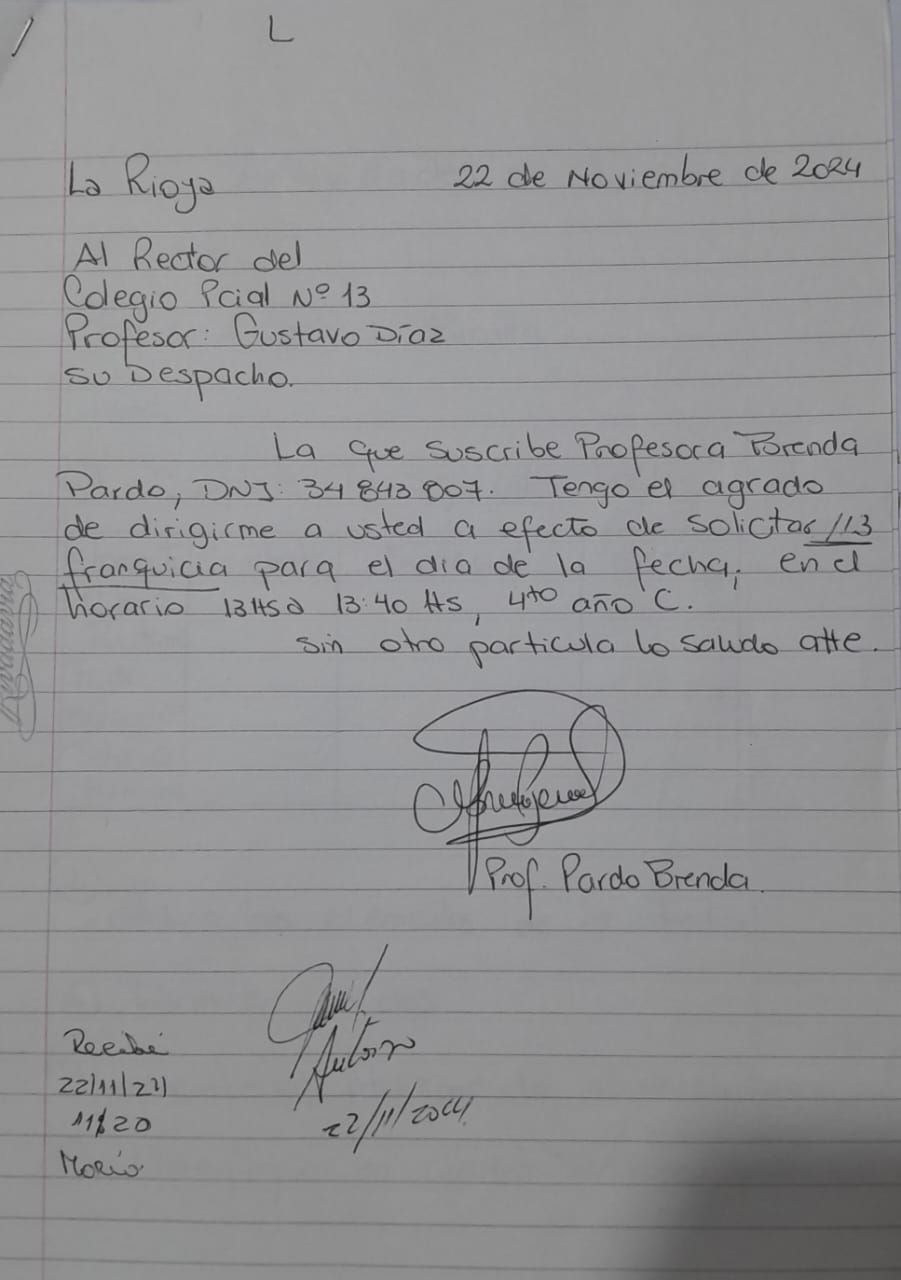 L
La Rioja 22 de Noviembre de 2024
Al Rector del
Colegio Pcial Nº 13
Profesor: Gustavo Díaz
su Despacho.
La que suscribe Profesora Brenda
Pardo, DNI: 34 843 807. Tengo el agrado
de dirigirme a usted a efecto de solicitar 1/3
franquicia para el día de la fecha, en el
horario 13Hs a 13:40 Hs, 4to año C.
sin otro particula lo saludo atte.
Prof. Pardo Brenda.
Recibí
22/11/24
11:20
Autorizo
22/11/2024